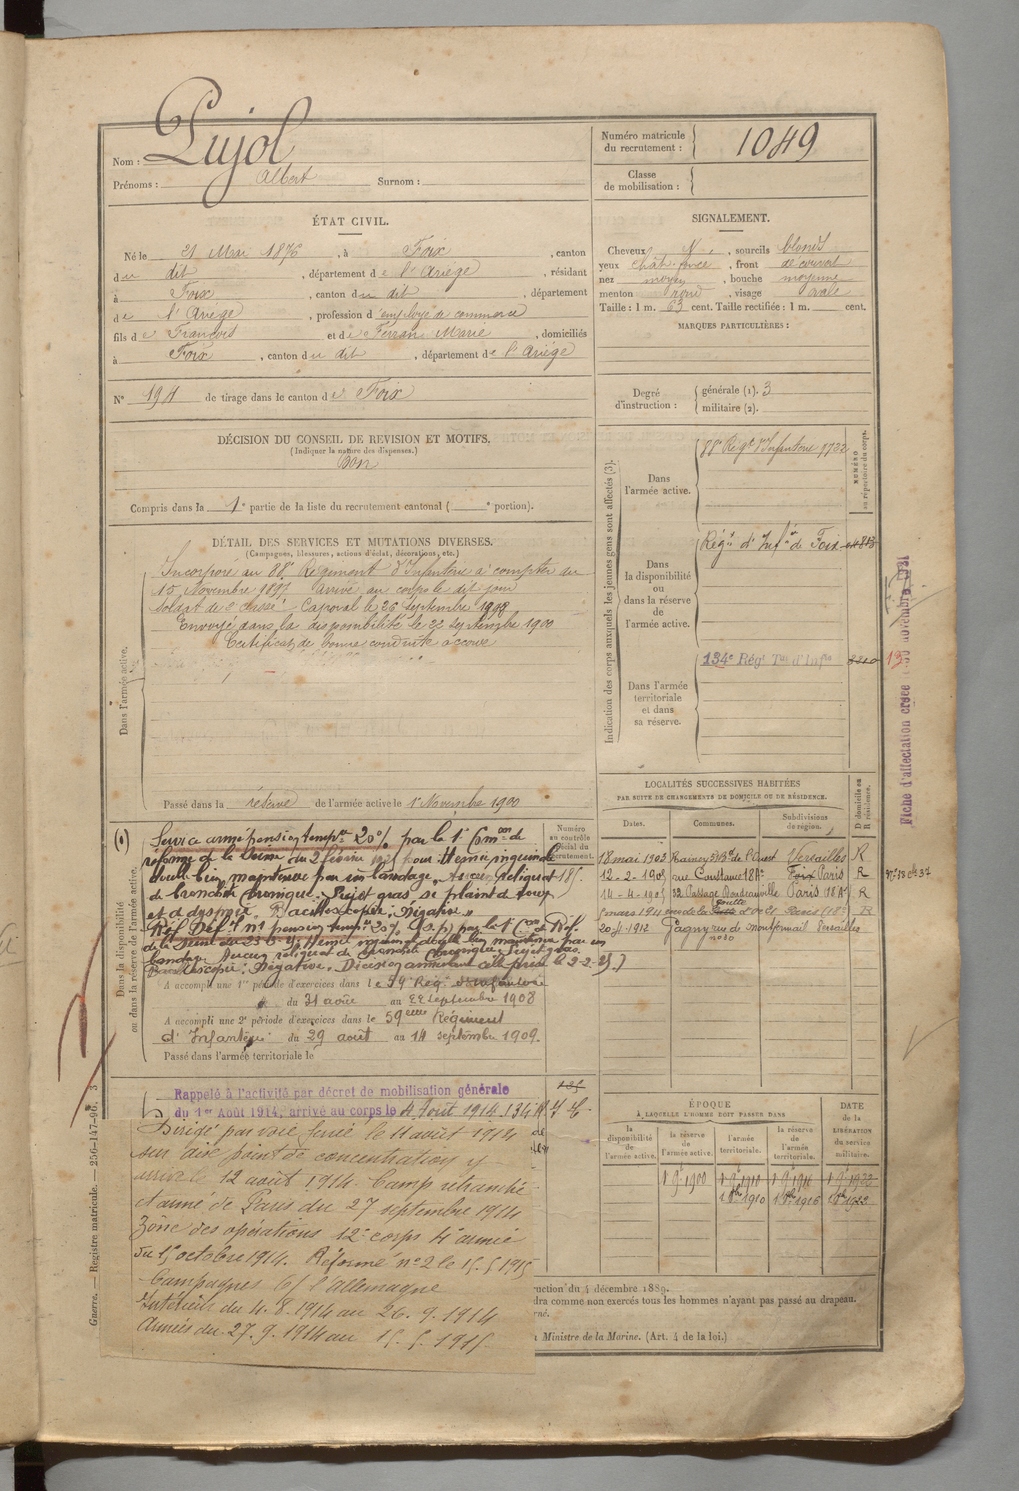 Nom : Pujol
Prénoms : Albert Surnom :
Numéro matricule
du recrutement : 1049
Classe
de mobilisation :
ÉTAT CIVIL.
Né le 21 Mai 1876, à Foix, canton
du dit, département de l'Ariège, résidant
à Foix, canton du dit, département
de l'Ariège, profession d'employé de commerce
fils de François et de Ferran Marie, domiciliés
à Foix, canton du dit, département de l'Ariège
N° 194 de tirage dans le canton de Foix
SIGNALEMENT.
Cheveux N, sourcils blonds
yeux chât. foncé, front découvert
nez moyen, bouche moyenne
menton rond, visage ovale
Taille : 1 m. 63 cent. Taille rectifiée : 1 m. cent.
MARQUES PARTICULIÈRES :
Degré
d'instruction :
générale (1). 3
militaire (2).
DÉCISION DU CONSEIL DE REVISION ET MOTIFS.
(Indiquer la nature des dispenses.)
Bon
Compris dans la 1e partie de la liste du recrutement cantonal ( e portion).
DÉTAIL DES SERVICES ET MUTATIONS DIVERSES.
(Campagnes, blessures, actions d'éclat, décorations, etc.)
Dans l'armée active.
Incorporé au 88e Régiment d'Infanterie à compter du
15 Novembre 1897. Arrivé au corps le dit jour
soldat de 2e classe. Caporal le 26 Septembre
Envoyé dans la disponibilité le 22 Septembre 1900
Certificat de bonne conduite accordé
Passé dans la réserve de l'armée active le 1er Novembre 1900
Indication des corps auxquels les jeunes gens sont affectés (3).
NUMÉRO
au répertoire du corps.
Dans
l'armée active.
88e Régt d'Infanterie 9722
Dans
la disponibilité
ou
dans la réserve
de
l'armée active.
Régt d'Infie de Foix
Dans l'armée
territoriale
et dans
sa réserve.
134e Régt Tal d'Infie
13
Fiche d'affectation créée novembre 1921
Dans la disponibilité
ou dans la réserve de l'armée active.
Numéro
au contrôle
spécial du
recrutement.
185
Service armé pension tempre 20% par la 1e Comon de
réforme de la Seine du 2 février pour Hernie inguinale
double bien maintenue par un bandage. reliquat
de bronchite chronique. Sujet gras se plaint de toux
et de dyspnée. Bacilloscopie : Négative.
Réf. Déf. n°1 pension tempre 20% par la 1e Con de Réf.
de la Seine du Hernie inguinale double bien maintenue par un
bandage. reliquat de bronchite chronique. Sujet gras.
Bacilloscopie : Négative. Décision annulant celle prise le 2-2-25
A accompli une 1re période d'exercices dans le Reg. d'Infanterie
du 31 août au 22 septembre 1908
A accompli une 2e période d'exercices dans le 59ème Régiment
d'Infanterie du 29 août au 14 septembre 1909.
Passé dans l'armée territoriale le
LOCALITÉS SUCCESSIVES HABITÉES
PAR SUITE DE CHANGEMENTS DE DOMICILE OU DE RÉSIDENCE.
Dates. Communes. Subdivisions
de région. D domicile ou
R résidence.
18 mai 1903 Raincy Bd de l'Ouest Versailles R
12-2-1905 rue Constance 18e Paris R
14-4-1905 32 Passage Paris 18e R
mars 1911 rue de la Goutte d'or 21 Paris 18e R
1912 Gagny rue de Montfermeil Versailles
Rappelé à l'activité par décret de mobilisation générale
du 1er Août 1914, arrivé au corps le 4 Août 1914
Dirigé par voie ferrée le 11 août 1914
sur point de concentration y
arrivé le 12 août 1914. Camp retranché
et armée de Paris du 27 septembre 1914
Zône des opérations 12e corps 4e armée
du 15 octobre 1914. Réformé n°2 le 15.5.1915
Campagnes c/ l'Allemagne
Intérieur du 4.8.1914 au 26.9.1914
Armées du 27.9.1914 au 15.5.1915
ÉPOQUE
À LAQUELLE L'HOMME DOIT PASSER DANS
DATE
de la
LIBÉRATION
du service
militaire.
la
disponibilité
de
l'armée active.
la réserve
de
l'armée active.
l'armée
territoriale.
la réserve
de
l'armée
territoriale.
1 9bre 1900 1 9bre 1910 1 9bre 1916 1 9bre 1922
1 8bre 1910 1 8bre 1916 1 8bre 1922
ruction du 4 décembre 1889.
dra comme non exercés tous les hommes n'ayant pas passé au drapeau.
rné.
Ministre de la Marine. (Art. 4 de la loi.)
Guerre. — Registre matricule. — 256-147-96. 3